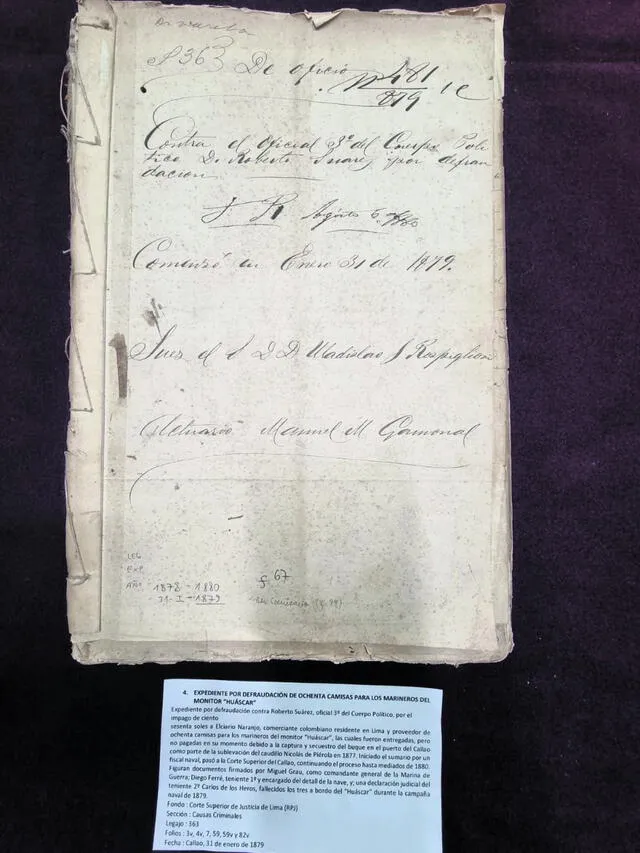 S 363 De oficio Nº 481
879
Contra el Oficial 3º del Cuerpo Poli
tico D. Roberto Suarez por defrau
dacion
Agosto 6 1880
Comenzó en Enero 31 de 1879.
Juez el S D D Uladislao J Rospigliosi
Actuario Manuel M Gamonal
LEG
EXP.
AÑO 1878 - 1880
31-I-1879
f 67
4. EXPEDIENTE POR DEFRAUDACIÓN DE OCHENTA CAMISAS PARA LOS MARINEROS DEL
MONITOR "HUÁSCAR"
Expediente por defraudación contra Roberto Suárez, oficial 3º del Cuerpo Político, por el
impago de ciento
sesenta soles a Elciario Naranjo, comerciante colombiano residente en Lima y proveedor de
ochenta camisas para los marineros del monitor "Huáscar", las cuales fueron entregadas, pero
no pagadas en su momento debido a la captura y secuestro del buque en el puerto del Callao
como parte de la sublevación del caudillo Nicolás de Piérola en 1877. Iniciado el sumario por un
fiscal naval, pasó a la Corte Superior del Callao, continuando el proceso hasta mediados de 1880.
Figuran documentos firmados por Miguel Grau, como comandante general de la Marina de
Guerra; Diego Ferré, teniente 1º y encargado del detall de la nave, y; una declaración judicial del
teniente 2º Carlos de los Heros, fallecidos los tres a bordo del "Huáscar" durante la campaña
naval de 1879.
Fondo : Corte Superior de Justicia de Lima (RPJ)
Sección : Causas Criminales
Legajo : 363
Folios : 3v, 4v, 7, 59, 59v y 82v
Fecha : Callao, 31 de enero de 1879